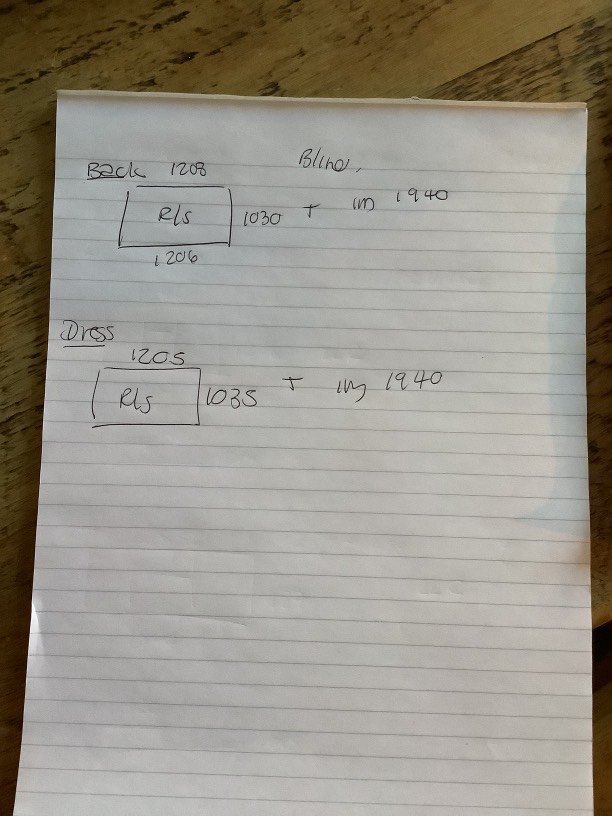 Blind,
Back 1208
Rls 1030 + im 1940
1206
Dress
1205
Rls 1035 + im 1940